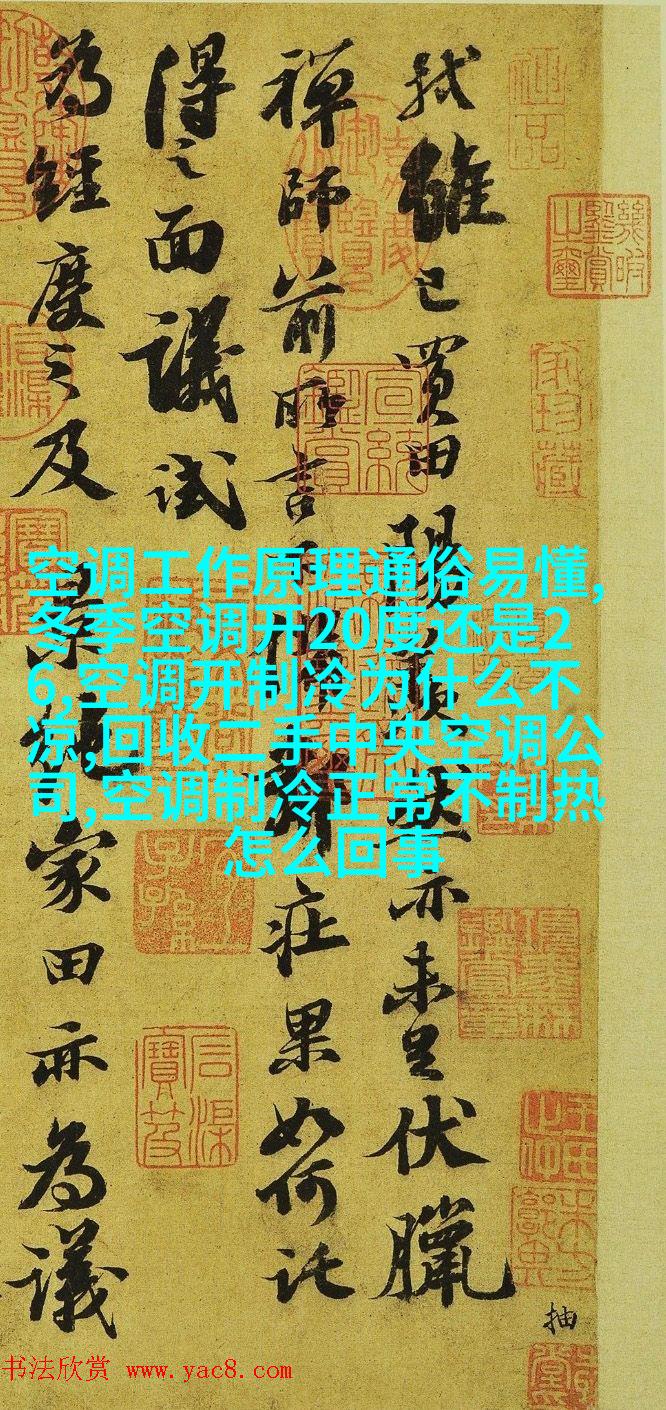 軾雖已買田陽亦未足伏臘
禪師前所言莊果如何託
得之面議試
為經度之及景純家田亦為議
抽
宣統鑑賞
嘉慶御覽之寶
空调工作原理通俗易懂,
冬季空调开20度还是2
6,空调开制冷为什么不
凉,回收二手中央空调公
司,空调制冷正常不制热
怎么回事
书法欣赏 www.yac8.com